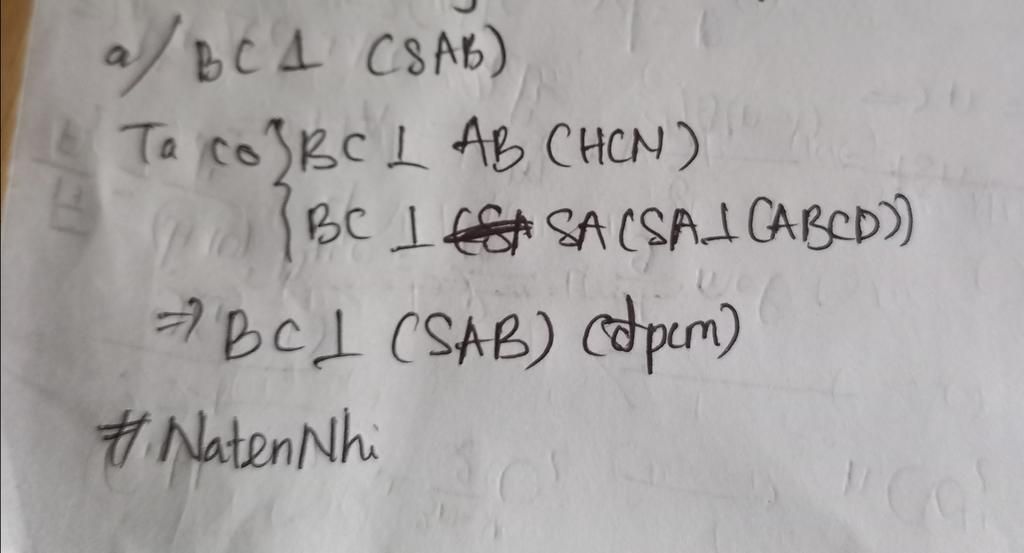 a/ BC ⊥ (SAB)
Ta có { BC ⊥ AB (HCN)
{ BC ⊥ SA (SA ⊥ (ABCD))
⇒ BC ⊥ (SAB) (đpcm)
#NatenNhi